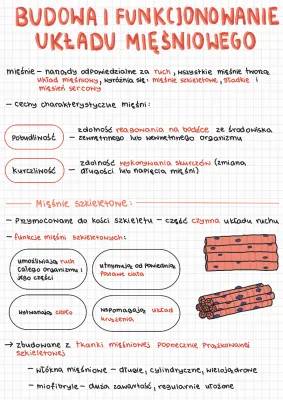 BUDOWA I FUNKCJONOWANIE
UKŁADU MIĘŚNIOWEGO
mięśnie – narządy odpowiedzialne za ruch, wszystkie mięśnie tworzą
układ mięśniowy, wyróżnia się: mięśnie szkieletowe, gładkie i
mięsień sercowy
– cechy charakterystyczne mięśni:
Pobudliwość – zdolność reagowania na bodźce ze środowiska
zewnętrznego lub wewnętrznego organizmu
Kurczliwość – zdolność wykonywania skurczów (zmiana
długości lub napięcia mięśni)
Mięśnie szkieletowe:
– Przymocowane do kości szkieletu – część czynna układu ruchu
– funkcje mięśni szkieletowych:
umożliwiają ruch
całego organizmu i
jego części
utrzymują odpowiednią
postawę ciała
wytwarzają ciepło
wspomagają układ
krążenia
→ zbudowane z tkanki mięśniowej poprzecznie prążkowanej
szkieletowej
– włókna mięśniowe – długie, cylindryczne, wielojądrowe
– miofibryle – duża zawartość, regularnie ułożone